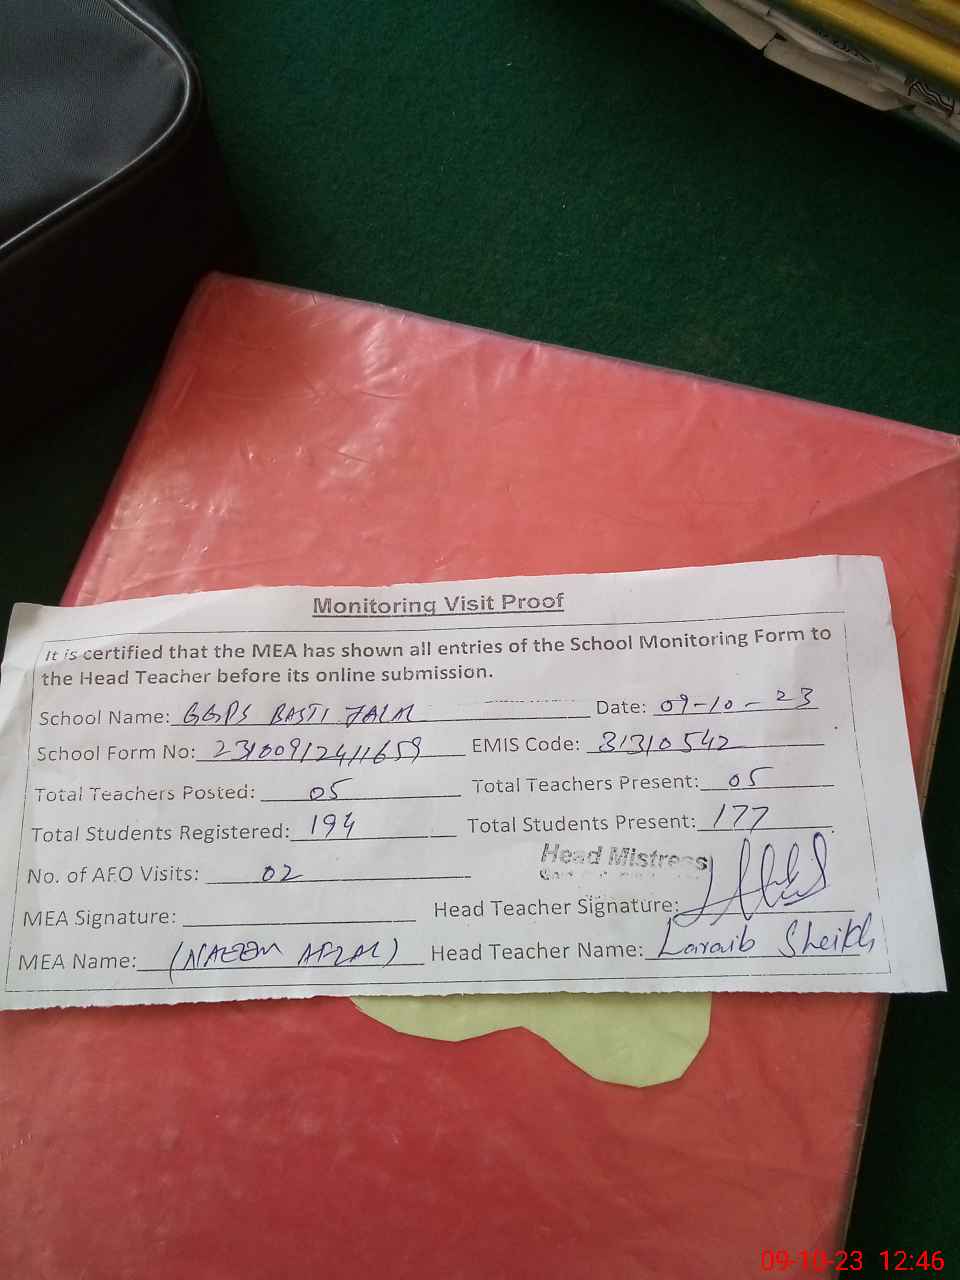 Monitoring Visit Proof
It is certified that the MEA has shown all entries of the School Monitoring Form to
the Head Teacher before its online submission.
School Name: GGPS BASTI Date: 09-10-23
School Form No: EMIS Code: 31310542
Total Teachers Posted: 05 Total Teachers Present: 05
Total Students Registered: 194 Total Students Present: 177
Head Mistress
No. of AFO Visits: 02
MEA Signature: Head Teacher Signature:
MEA Name: (NAEEM AFZAL) Head Teacher Name: Laraib Sheikh
09-10-23 12:46